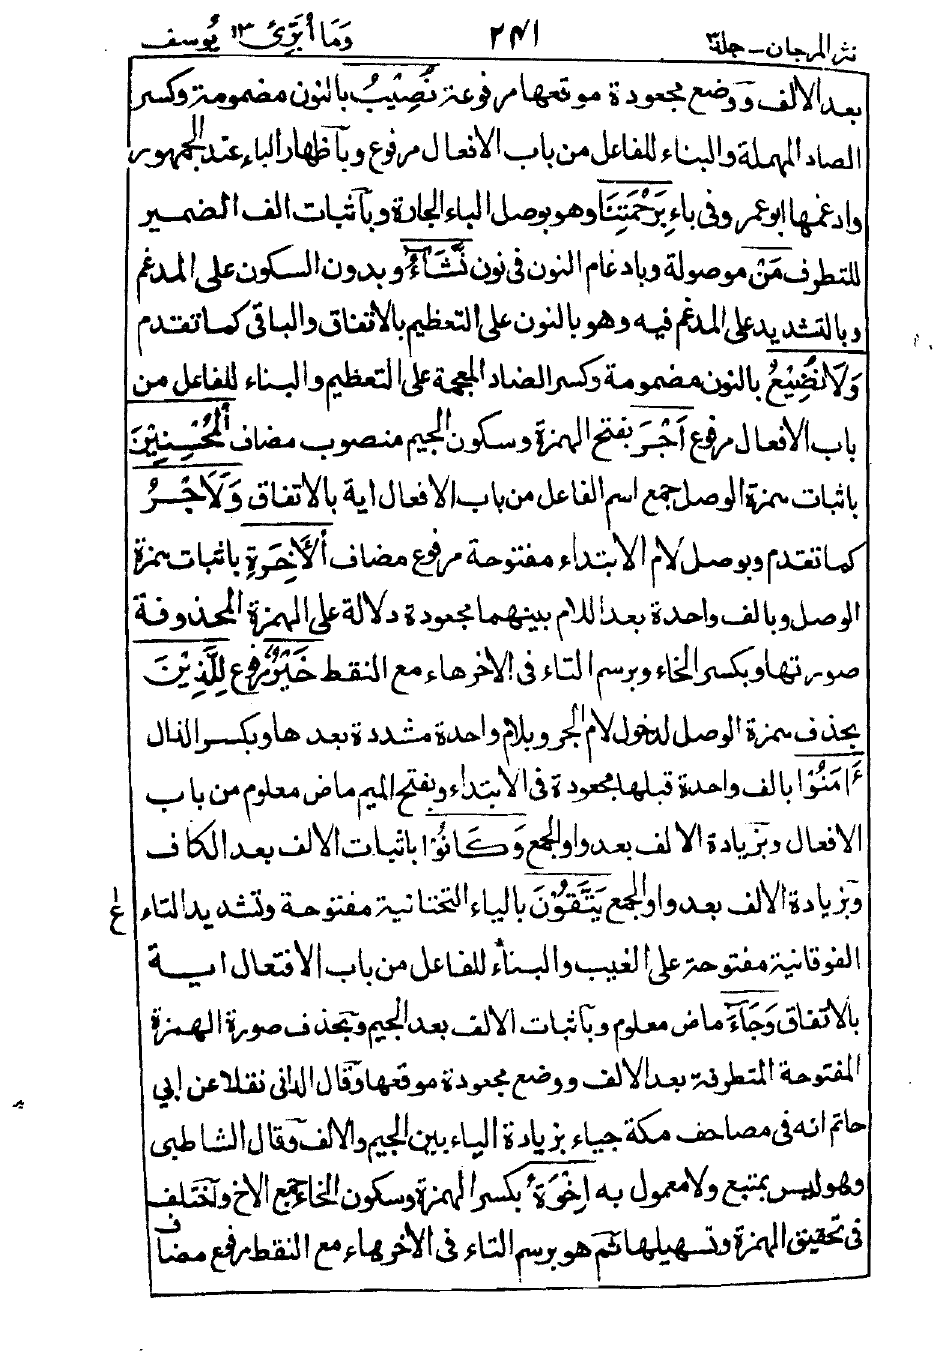 نثر المرجان - جلد٣ ٢٤١ وَمَا أُبَرِّئُ ١٣ يُوسف
بعد الالف ووضع مجعودة موقعها مرفوعة نُصِيْبُ بالنون مضمومة وكسر
الصاد المهملة والبناء للفاعل من باب الافعال مرفوع وبآظهار الباء عند الجمهور
وادغمها ابو عمر وفى باء بِرَحْمَتِنَا وهو بوصل الباء الجارة وبآثبات الف الضمير
للتطرف مَنْ موصولة وبادغام النون فى نون نَّشَآءُ وبدون السكون على المدغم
وبالتشديد على المدغم فيه وهو بالنون على التعظيم بالاتفاق والباقى كما تقدم
وَلَا نُضِيْعُ بالنون مضمومة وكسر الضاد المعجمة على التعظيم والبناء للفاعل من
باب الافعال مرفوع اَجْرَ بفتح الهمزة وسكون الجيم منصوب مضاف الْمُحْسِنِيْنَ
باثبات همزة الوصل جمع اسم الفاعل من باب الافعال اية بالاتفاق وَلَاَجْرُ
كما تقدم وبوصل لام الابتداء مفتوحة مرفوع مضاف الْاٰخِرَةِ باثبات همزة
الوصل وبالف واحدة بعد اللام بينهما مجعودة دلالة على الهمزة المحذوفة
صورتها وبكسر الخاء وبرسم التاء فى الاخر هاء مع النقط خَيْرٌ مرفوع لِلَّذِيْنَ
بحذف همزة الوصل لدخول لام الجر وبلام واحدة مشددة بعدها وبكسر الذال
ءَامَنُوْا بالف واحدة قبلها مجعودة فى الابتداء وبفتح الميم ماض معلوم من باب
الافعال وبزيادة الالف بعد واو الجمع وَكَانُوْا باثبات الالف بعد الكاف
وبزيادة الالف بعد واو الجمع يَتَّقُوْنَ بالياء التحتانية مفتوحة وتشديد التاء
ع
الفوقانية مفتوحة على الغيب والبناء للفاعل من باب الافتعال اية
بالاتفاق وَجَآءَ ماض معلوم وبآثبات الالف بعد الجيم وبحذف صورة الهمزة
المفتوحة المتطرفة بعد الالف ووضع مجعودة موقعها وقال الدانى نقلا عن ابي
حاتم انه فى مصاحف مكة جياء بزيادة الياء بين الجيم والالف وقال الشاطبى
وهو ليس بمتبع ولا معمول به اِخْوَةُ بكسر الهمزة وسكون الخاء جمع الاخ واختلف
فى تحقيق الهمزة وتسهيلها ثم هو برسم التاء فى الاخر هاء مع النقط مرفوع مضاف